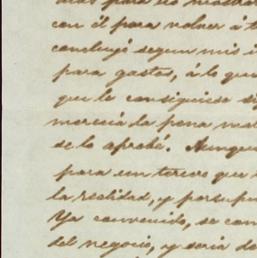 mas para no mostrar
con él para volver á t
concluyó segun mis i
para gastos, á lo que
que lo consiguiese si
merecia la pena mat
se lo aprobé. Aunque
para un tercero que
la realidad, y por su pu
Ya convenido, se con
del negocio, y seria de